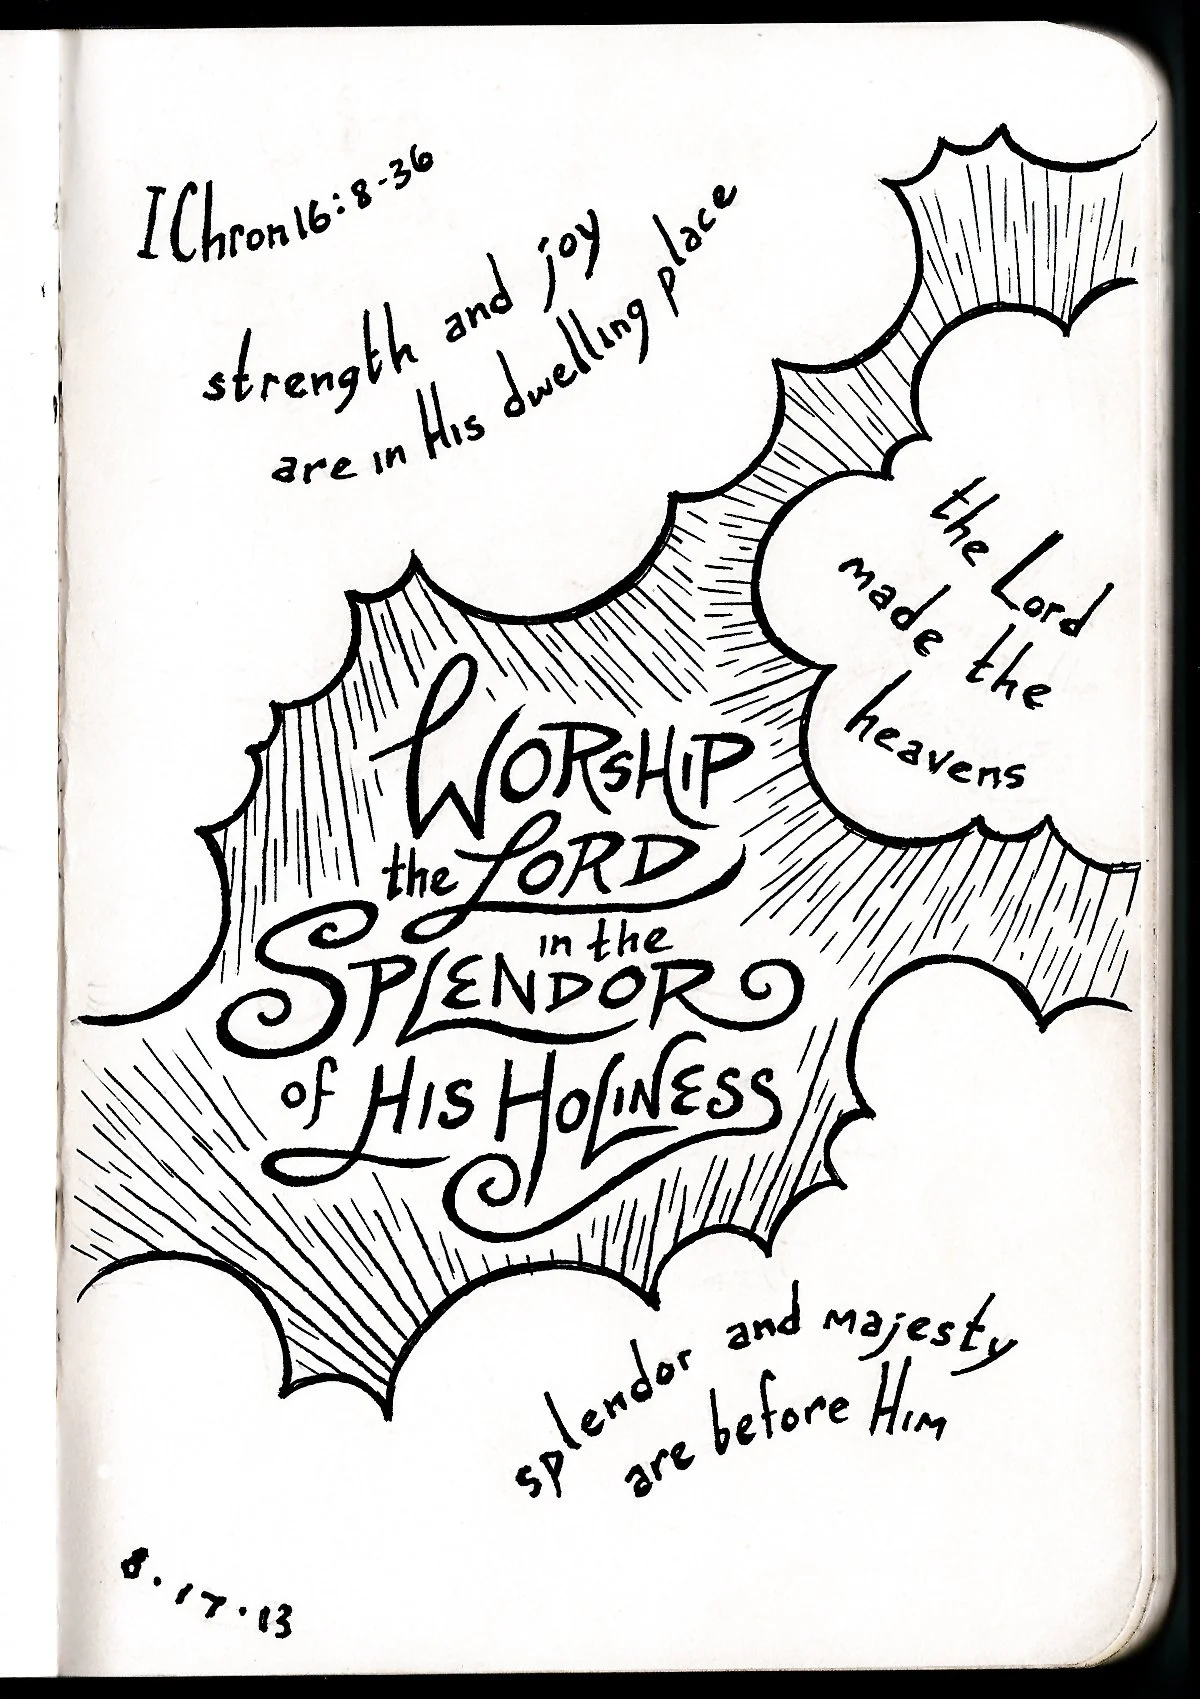 I Chron 16:8-36
strength and joy
are in His dwelling place
the Lord
made the
heavens
WORSHIP
the LORD
in the
SPLENDOR
of HIS HOLINESS
splendor and majesty
are before HIM
8.17.13